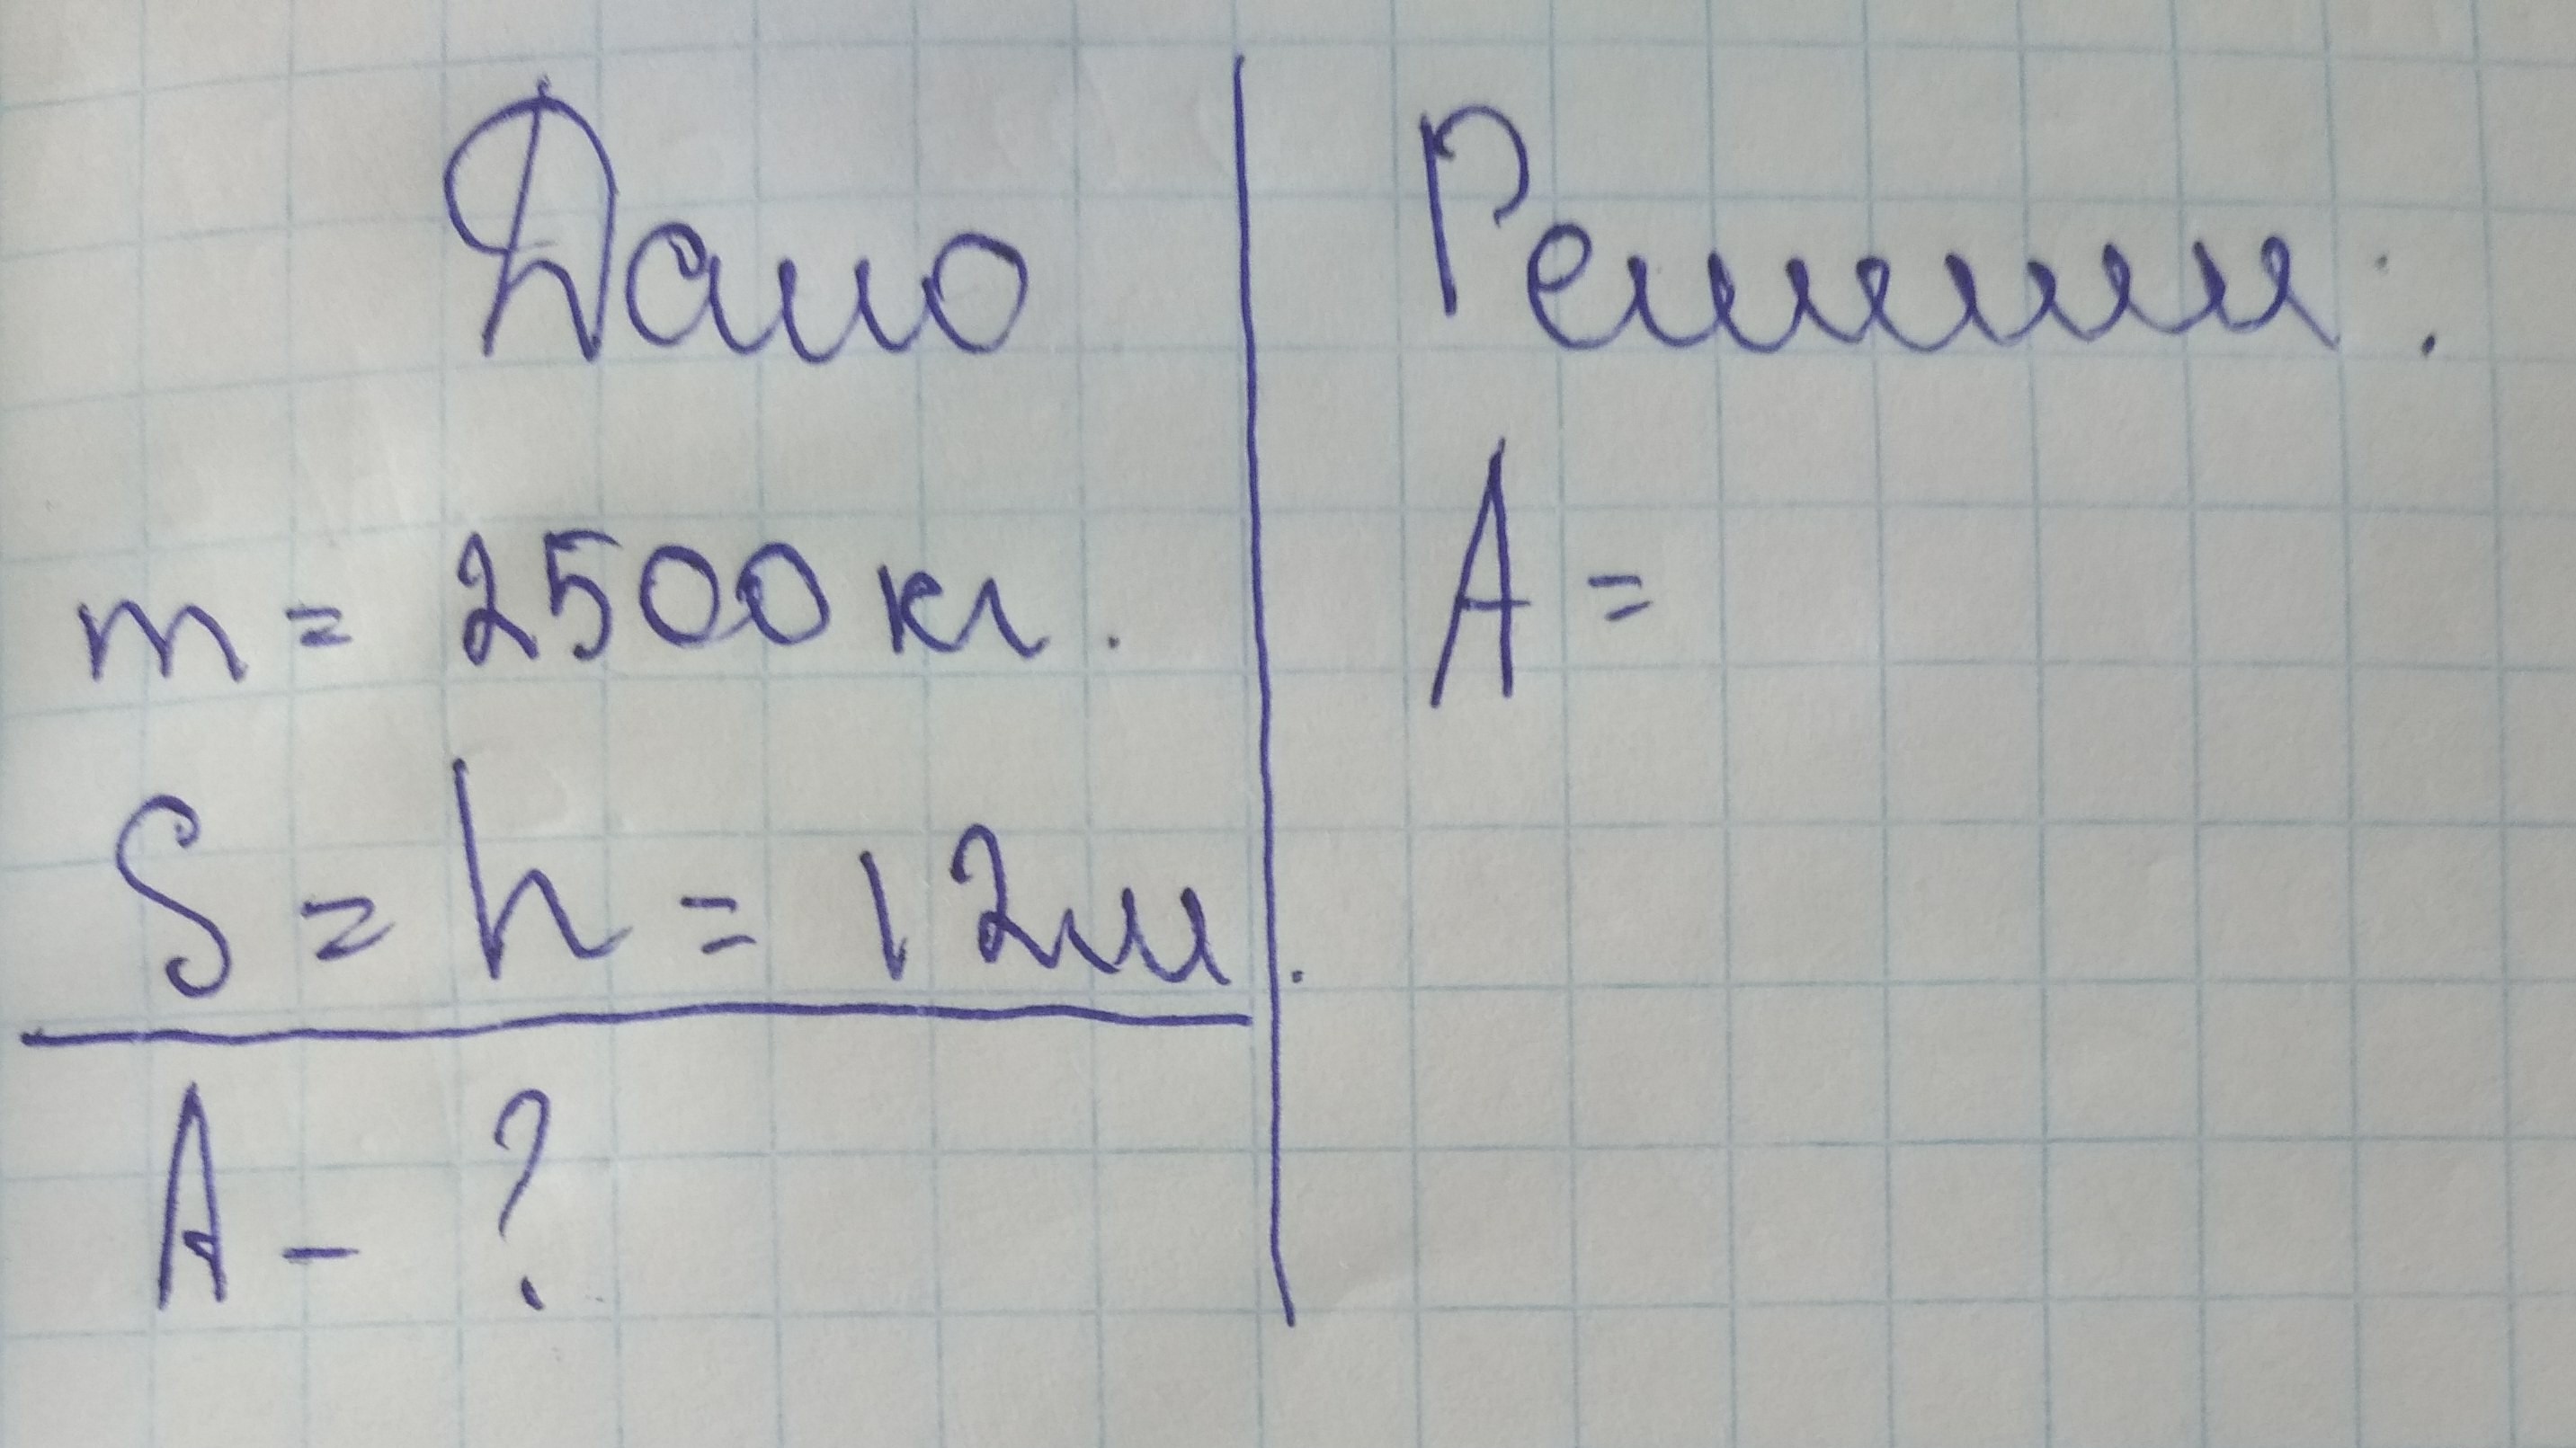 Дано
m = 2500 кг.
S = h = 12м.
A - ?
Решение:
A =